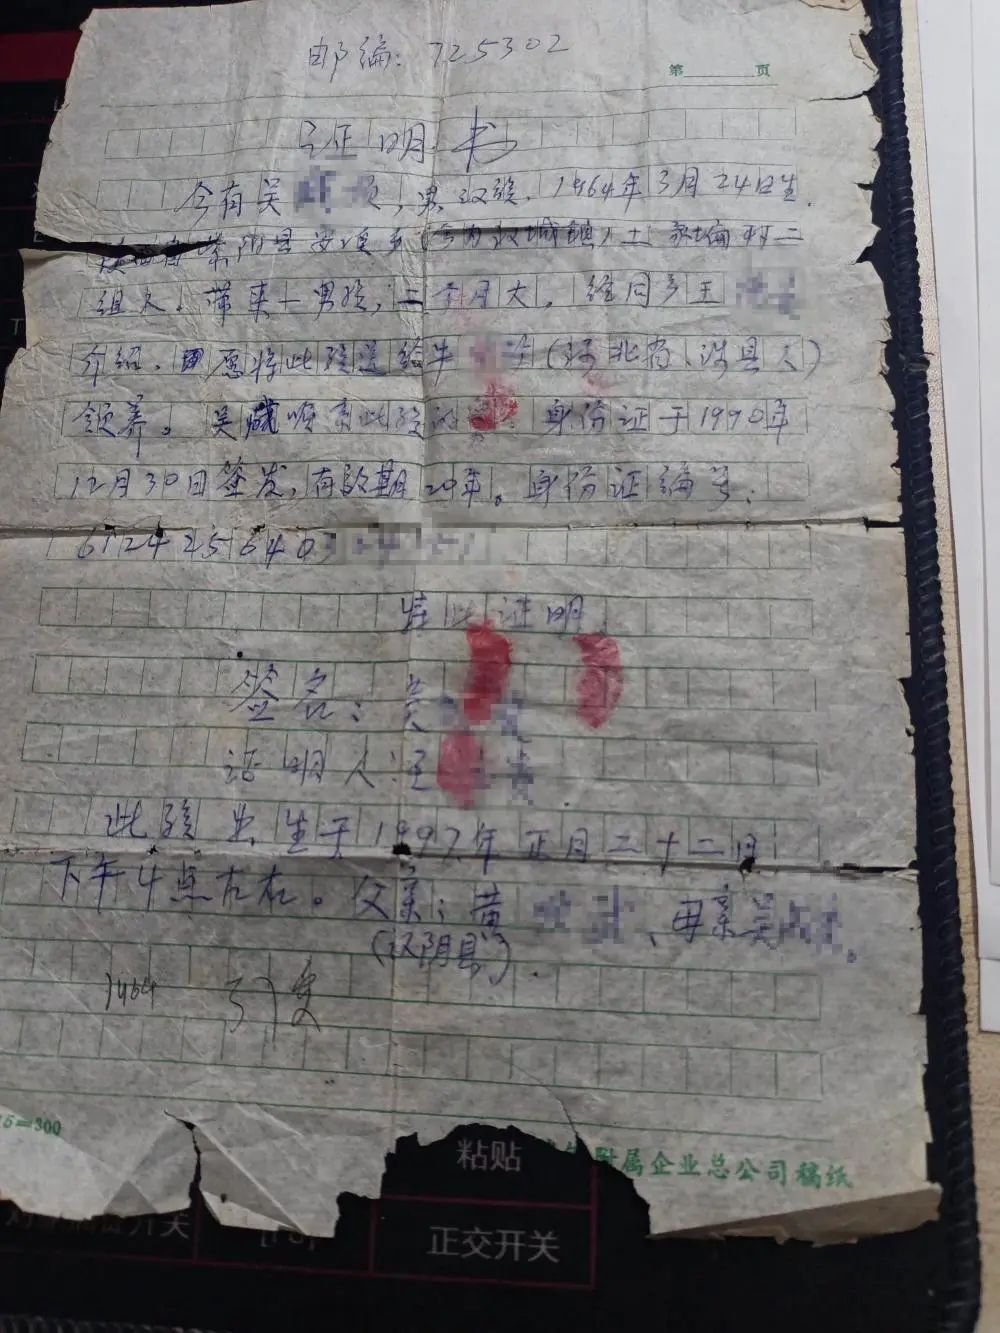 邮编：725302
第 页
证明书
今有吴 顺，男汉族，1964年3月24日生，
县 乡（ 汉城镇）土 村二
组人。带来一男孩，二个月大。经同乡王
介绍、愿将此孩送给牛 （河北省、涉县人）
领养。吴 顺系此孩的 身份证于1990年
12月30日签发，有效期20年。身份证编号：
6124256403
特此证明
签名：吴
证明人：王
此孩出生于1997年正月二十二日
下午4点左右。父亲：黄 、母亲吴 。
（汉阴县）．
1464
15=300
附属企业总公司稿纸
粘贴
开关
正交开关